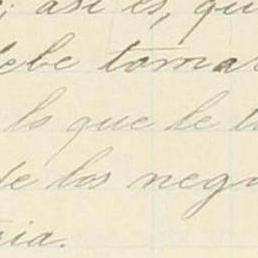 ; así es, qu
debe tomar
lo que le t
de los nego
ria.